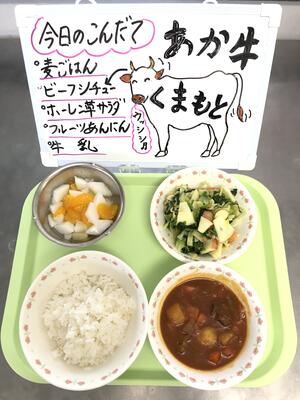 今日のこんだて
°麦ごはん
°ビーフシチュー
°ホーレン草サラダ
°フルーツあんにん
°牛乳
あか牛
くまもと